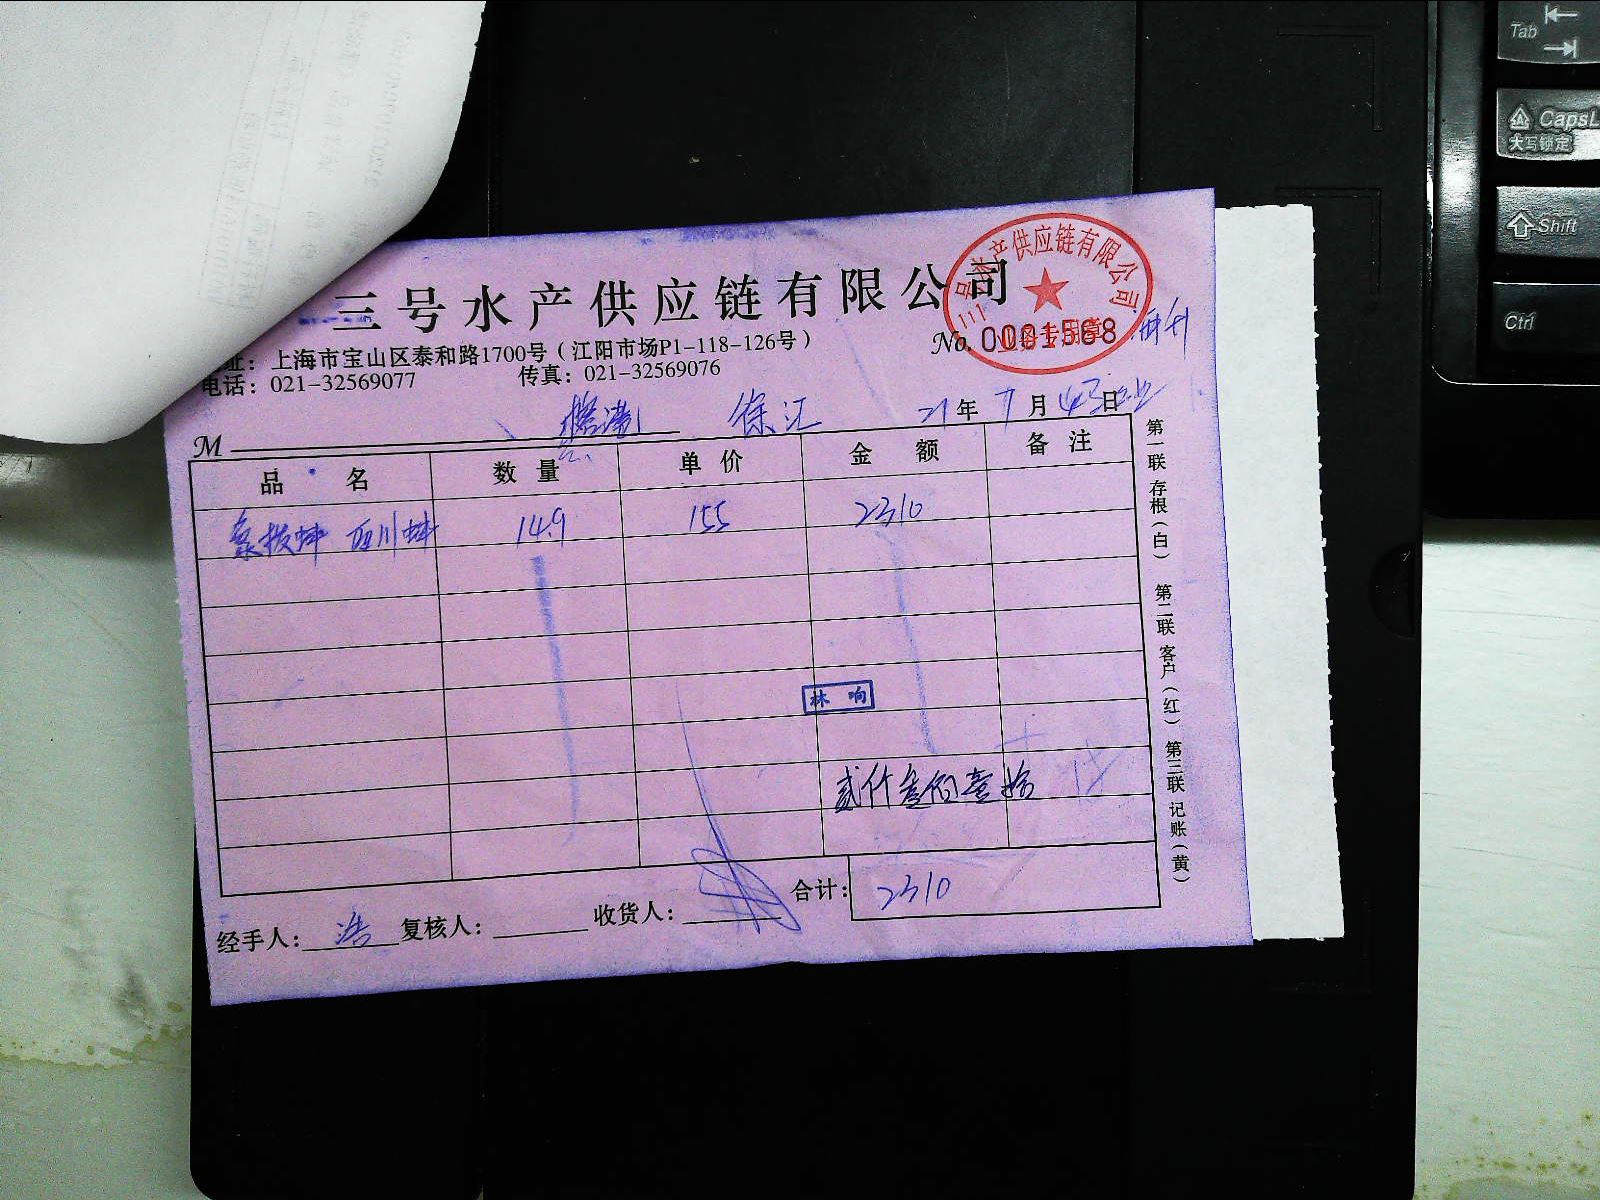 三号水产供应链有限公司
三号水产供应链有限公司
业务专用章
No. 0001568
址：上海市宝山区泰和路1700号（江阳市场P1-118-126号）
电话：021-32569077 传真：021-32569076
徐汇 21年 7月 日
M
品 名 数 量 单 价 金 额 备 注
14.9 155 2310
林 响
贰仟叁佰壹拾
合计： 2310
经手人： 浩 复核人： 收货人：
第一联 存根（白） 第二联 客户（红） 第三联 记账（黄）
Tab
CapsL
大写锁定
Shift
Ctrl